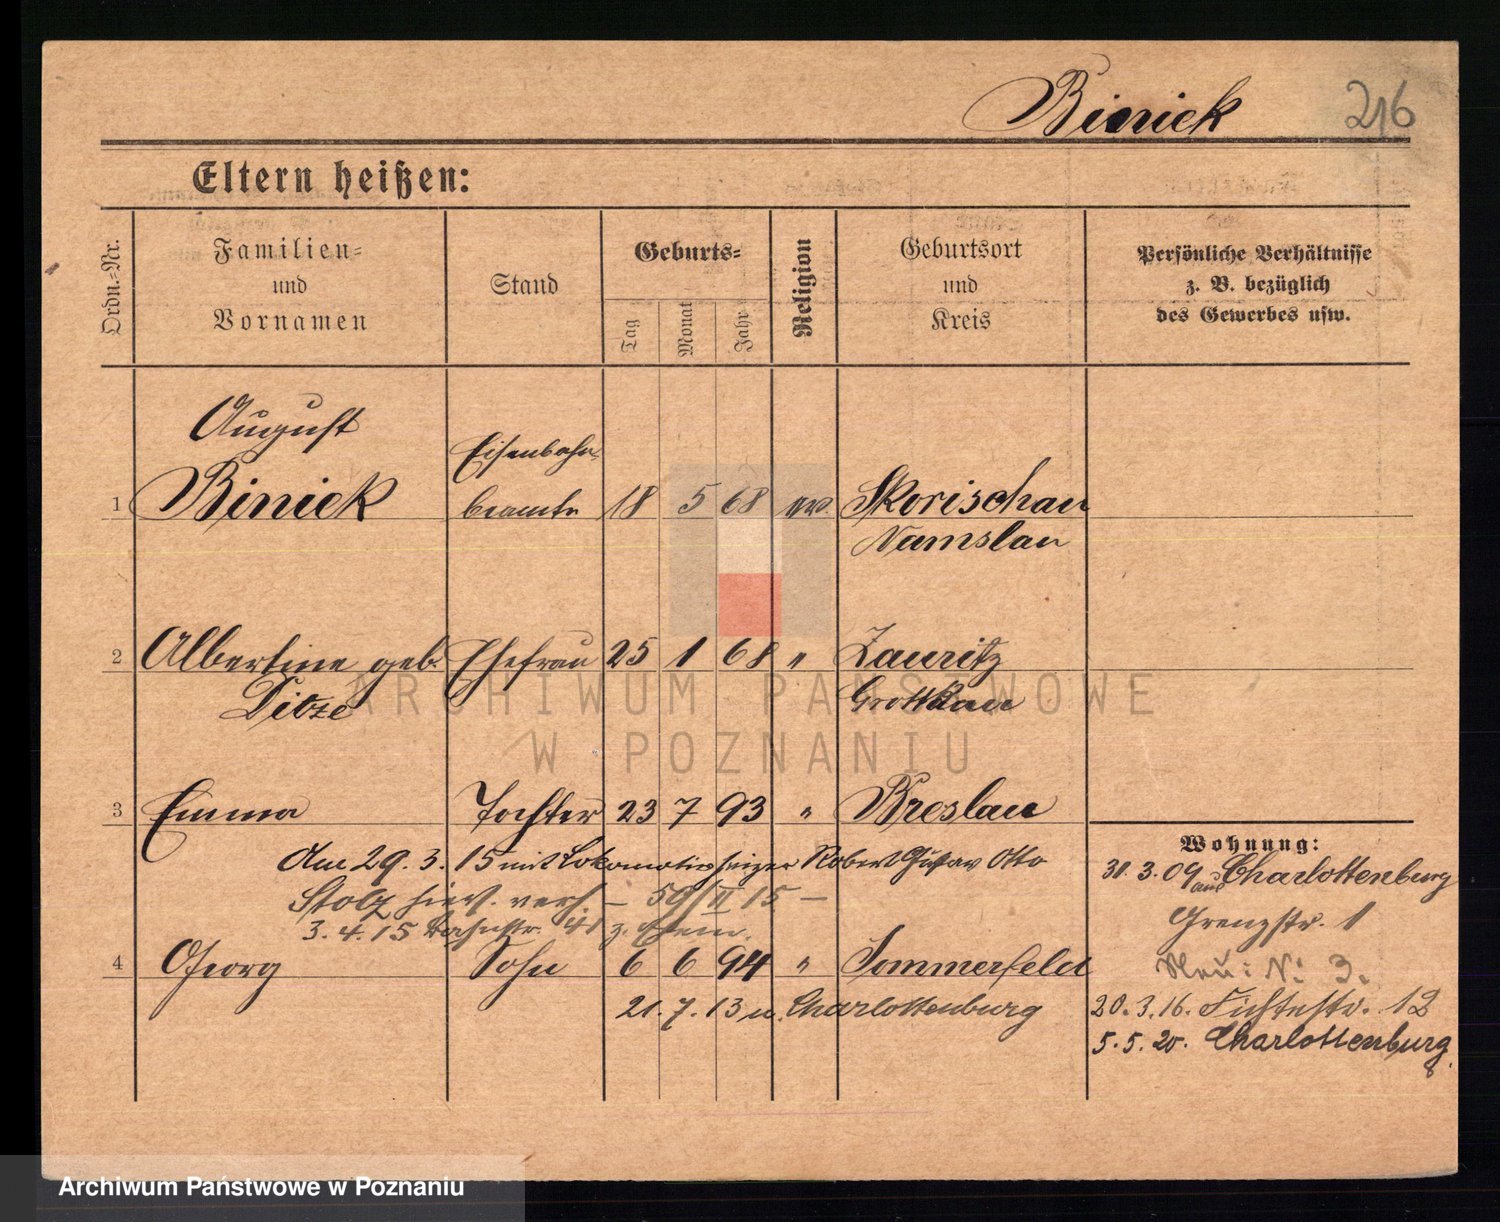 Biniek 216
Eltern heißen:
Ordn.-Nr.
Familien-
und
Vornamen
Stand
Geburts-
Tag
Monat
Jahr
Religion
Geburtsort
und
Kreis
Persönliche Verhältnisse
z. B. bezüglich
des Gewerbes usw.
August
Eisenbahn-
1 Biniek beamte 18 5 68 ev. Skorischau
Namslau
2 Albertine geb. Ehefrau 25 1 68 " Zauritz
Ditze Grottkau
ARCHIWUM PAŃSTWOWE
W POZNANIU
3 Emma Tochter 23 7 93 " Breslau
Am 29. 3. 15 mit Lokomotivheizer Robert Gustav Otto
Stolz hier. verh. – 50/II 15 –
3. 4. 15 Bahnstr. 41
4 Georg Sohn 6 6 94 " Sommerfeld
21. 7. 13 n. Charlottenburg
Wohnung:
31. 3. 09 aus Charlottenburg
Grenzstr. 1
Neu: No 3.
20. 3. 16. Fichtestr. 12
5. 5. 20. Charlottenburg.
Archiwum Państwowe w Poznaniu